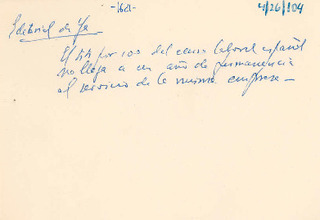 -1621-
4/26/104
Editorial de Ya
El 44 por 100 del censo laboral español
no llega a un año de permanencia
al servicio de la misma empresa -